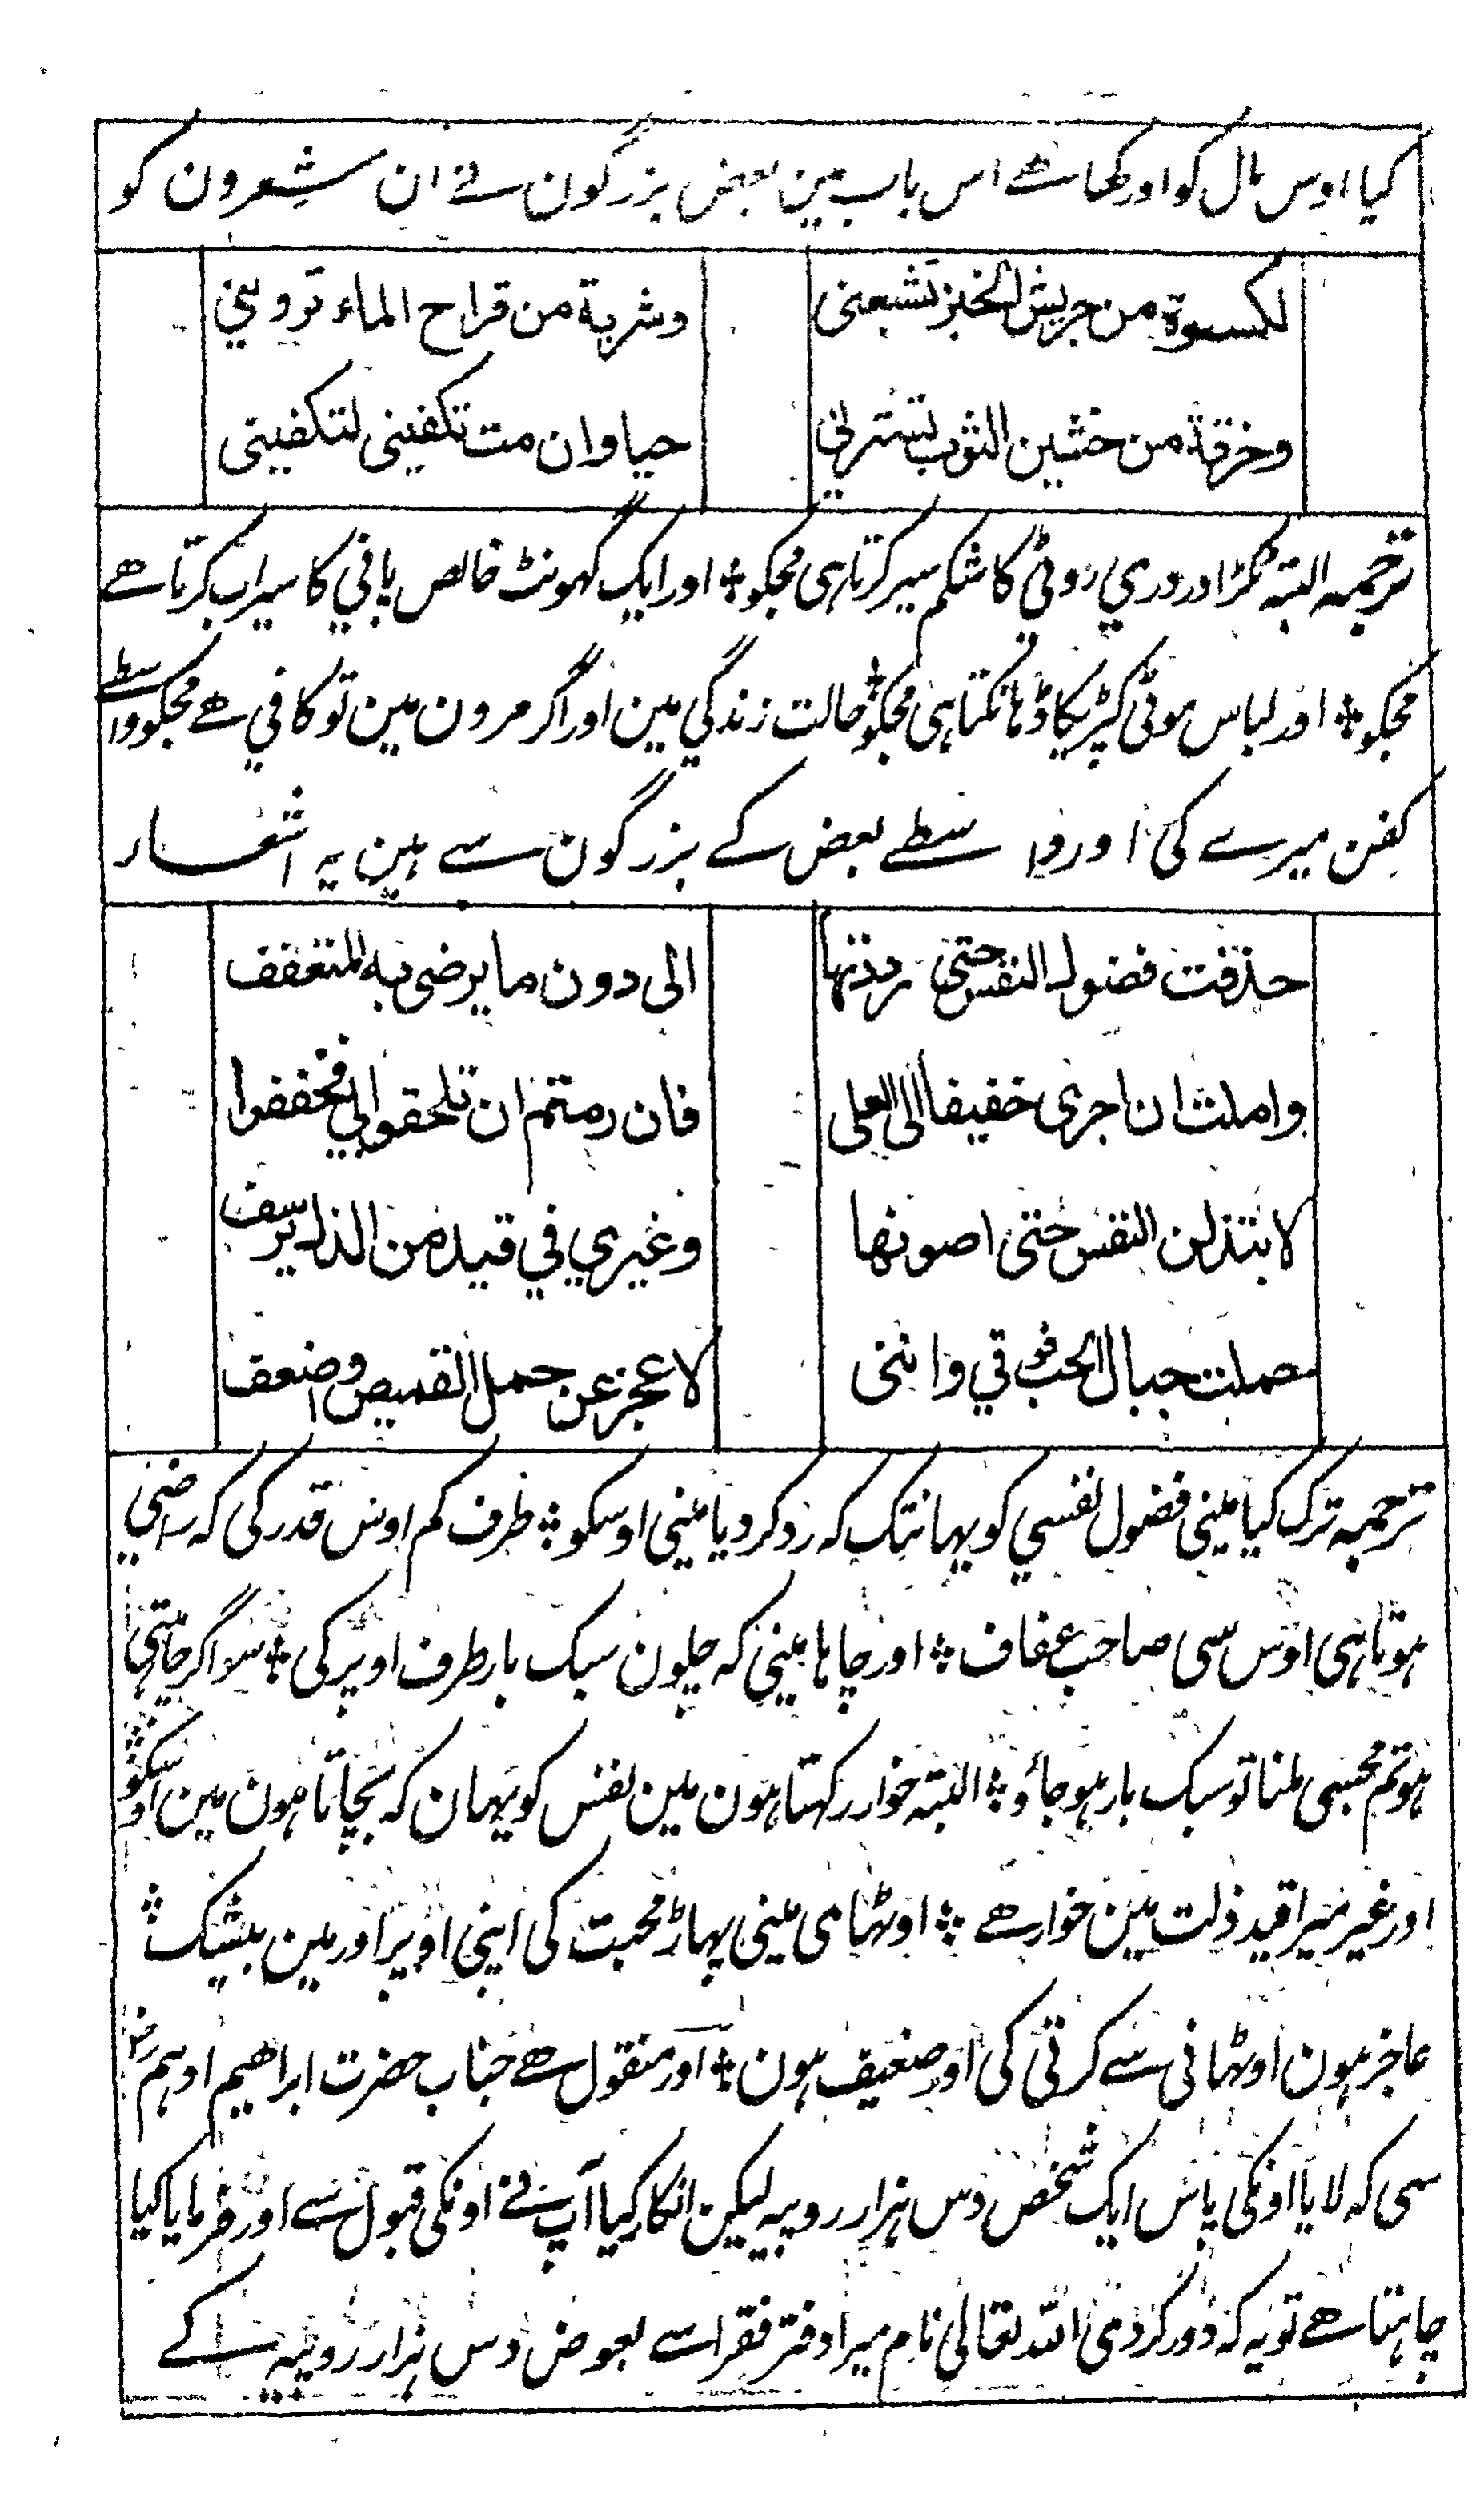 کیا اوس مال کو اور کھائے اس باب مین بعض بزرگون نے ان شعرون کو
لکسوة من جریش الخبز تشبعنی وشربة من قراح الماء تروینی
وخرقة من خشین الثوب تسترنی حیا وان مت تکفینی لتکفینی
ترجمہ البتہ ٹکڑا دروري روٹی کا شکم سیر کرتا ہی مجکو ؞ اور ایک گہونٹ خالص پانی کا سیراب کرتا ھے
مجکو ؞ اور لباس موٹی کپڑیکا ڈہانکتا ہی مجکو ؞ حالت زندگي مین اور اگر مرون مین تو کافي ھے مجکو واسطے
کفن میرے کی اور واسطے بعض کے بزرگون سے ہین یہ اشعار
حذفت فضول النفس حتی رددتها الی دون ما یرضی به المتعفف
واملت ان اجری خفیفا الی العلی فان رمتم ان تلحقوا بی فخففوا
لابتذلن النفس حتی اصونها وغیري في قید من الذل یرسف
حملت جبال الحب فوقي واننی لاعجز عن حمل القمیص واضعف
ترجمہ ترک کیا مینی فضول نفسي کو یہانتک کہ رد کر دیا مینی اوسکو ؞ طرف کم اوس قدر کی کہ راضي
ہوتا ہی اوس سی صاحب عفاف ؞ اور چاہا مینی کہ چلون سبک بار طرف اوپر کی ؞ سو اگر چاہتی
ہو تم مجسی ملنا تو سبک بار ہو جاؤ ؞ البتہ خوار رکہتا ہون مین نفس کو یہان کہ بچاتا ہون مین اوسکو ؞
اور غیر میرا قید ذلت مین خوار ھے ؞ اوٹہا می مینی پہاڑ محبت کی اپنی اوپر اور مین بیشک ؞
عاجز ہون اوٹہانی سے کرتی کی اور ضعیف ہون ؞ اور منقول ھے جناب حضرت ابراهیم ادہم رض
سی کہ لایا اونکی پاس ایک شخص دس ہزار روپیہ لیکن انکار کیا آپ نے اونکی قبول سے اور فرمایا کیا
چاہتا ھے تو یہ کہ دور کردی اللہ تعالی نام میرا دفتر فقرا سے بعوض دس ہزار روپیہ کے